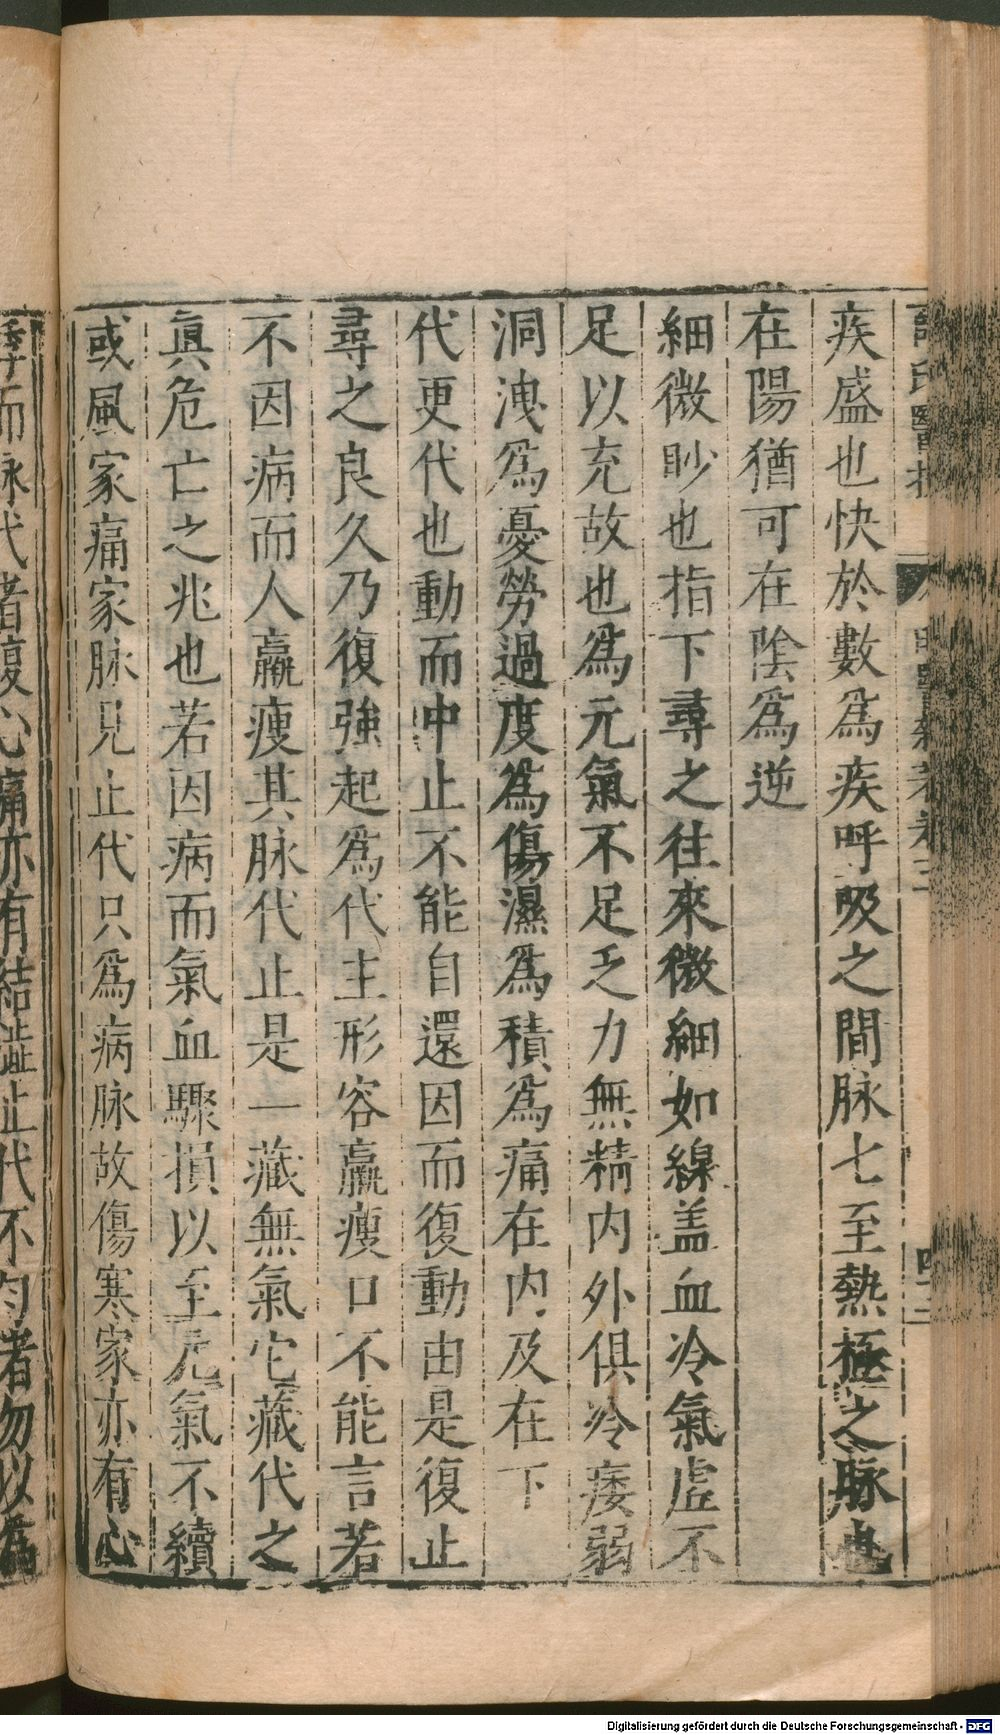 疾盛也快於數爲疾呼吸之間脉七至熱極之脉也
在陽猶可在陰爲逆
細微眇也指下尋之往來微細如線盖血冷氣虛不
足以充故也爲元氣不足乏力無精内外俱冷痿弱
洞洩爲憂勞過度爲傷濕爲積爲痛在内及在下
代更代也動而中止不能自還因而復動由是復止
尋之良久乃復強起爲代主形容羸瘦口不能言若
不因病而人羸瘦其脉代止是一藏無氣它藏代之
眞危亡之兆也若因病而氣血驟損以至元氣不續
或風家痛家脉見止代只爲病脉故傷寒家亦有心
悸而脉代者腹心痛亦有結澁止代不匀者勿以爲
Digitalisierung gefördert durch die Deutsche Forschungsgemeinschaft - DFG